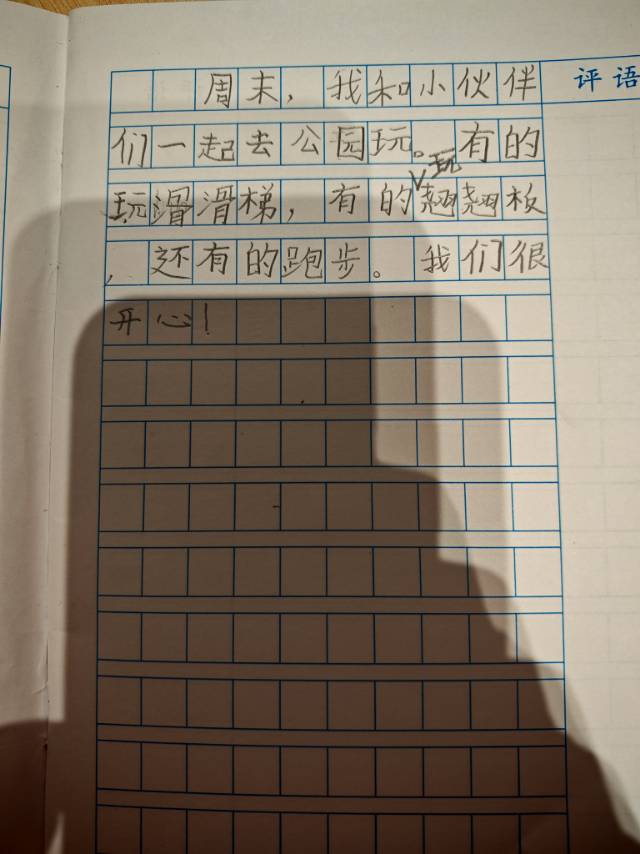 评语
周末，我和小伙伴
们一起去公园玩。有的
玩滑滑梯，有的玩翘翘板
，还有的跑步。我们很
开心！